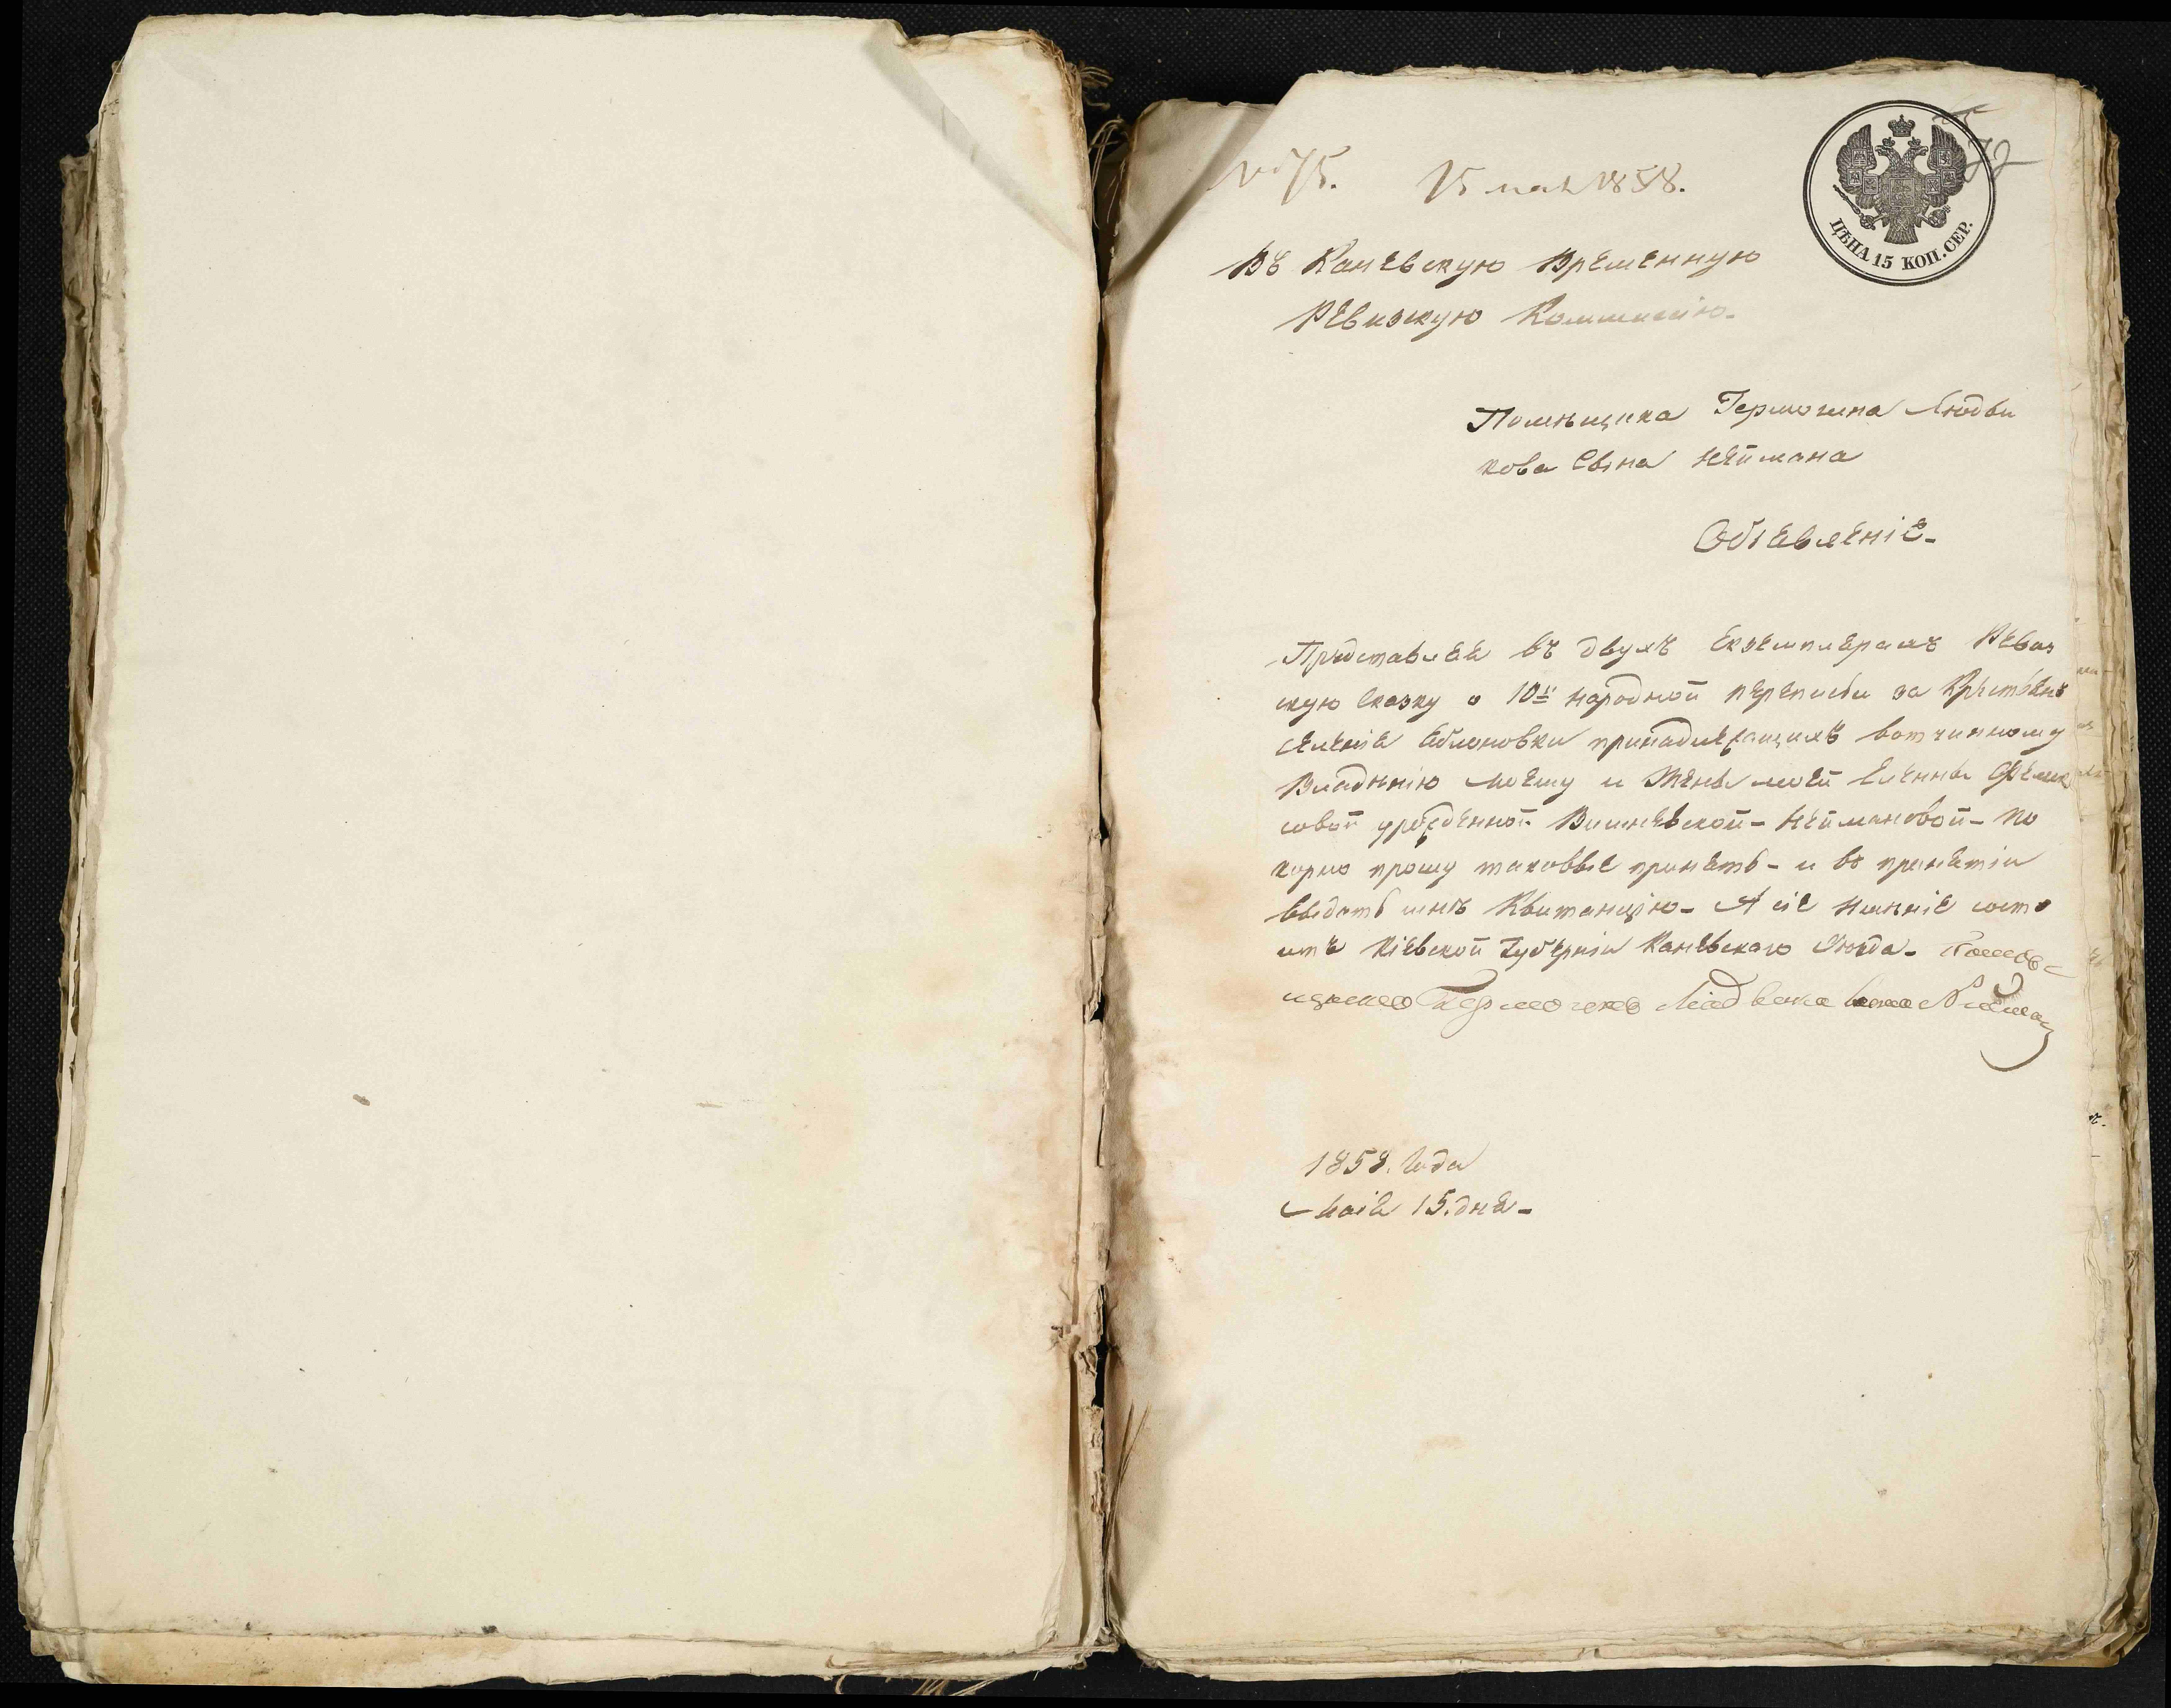 № 75. 15 мая 1858.
72
ЦѢНА 15 КОП. СЕР.
Въ Каневскую Временную
Ревизкую Коммисію.
Помѣщика Гермогина Людви
кова Сына Нѣймана
Обіявленіе.
Представляя въ двухъ екземплярахъ Ревиз
скую Сказку о 10й народной переписи за Крѣстьянъ
селенія Яблоновки принадлежащихъ вотчинному
Владѣнію моему и Жены моей Еленны
урожденной Вишневской - Нѣймановой - по
корно прошу таковые принять - и въ принятіи
выдать мнѣ Квитанцію - А сіе имѣніе состо
итъ Кіевской Губерніи Каневскаго Уѣзда -
1858. Года
Маія 15. дня -